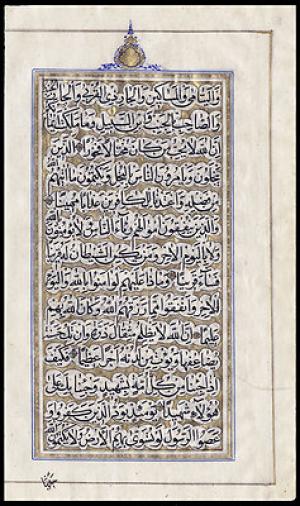 وَالْيَتَامَى وَالْمَسَاكِينِ وَالْجَارِ ذِي الْقُرْبَى وَالْجَارِ
وَالصَّاحِبِ بِالْجَنْبِ وَابْنِ السَّبِيلِ وَمَا مَلَكَتْ
إِنَّ اللَّهَ لَا يُحِبُّ مَنْ كَانَ مُخْتَالًا فَخُورًا الَّذِينَ
يَبْخَلُونَ وَيَأْمُرُونَ النَّاسَ بِالْبُخْلِ وَيَكْتُمُونَ مَا آتَيهُمُ
مِنْ فَضْلِهِ وَأَعْتَدْنَا لِلْكَافِرِينَ عَذَابًا مُهِينًا
وَالَّذِينَ يُنْفِقُونَ أَمْوَالَهُمْ رِئَاءَ النَّاسِ وَلَا يُؤْمِنُونَ
وَلَا بِالْيَوْمِ الْآخِرِ وَمَنْ يَكُنِ الشَّيْطَانُ لَهُ قَرِينًا
فَسَاءَ قَرِينًا وَمَاذَا عَلَيْهِمْ لَوْ آمَنُوا بِاللَّهِ وَالْيَوْمِ
الْآخِرِ وَأَنْفَقُوا مِمَّا رَزَقَهُمُ اللَّهُ وَكَانَ اللَّهُ بِهِمْ
عَلِيمًا إِنَّ اللَّهَ لَا يَظْلِمُ مِثْقَالَ ذَرَّةٍ وَإِنْ تَكُ حَسَنَةً
يُضَاعِفْهَا وَيُؤْتِ مِنْ لَدُنْهُ أَجْرًا عَظِيمًا فَكَيْفَ
إِذَا جِئْنَا مِنْ كُلِّ أُمَّةٍ بِشَهِيدٍ وَجِئْنَا بِكَ عَلَى
هَؤُلَاءِ شَهِيدًا يَوْمَئِذٍ يَوَدُّ الَّذِينَ كَفَرُوا وَ
عَصَوُا الرَّسُولَ لَوْ تُسَوَّى بِهِمُ الْأَرْضُ وَلَا يَكْتُمُونَ